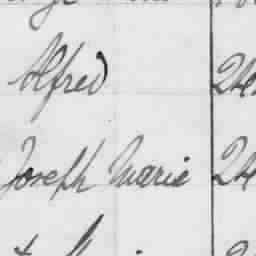 Alfred 24
Joseph Marie 24